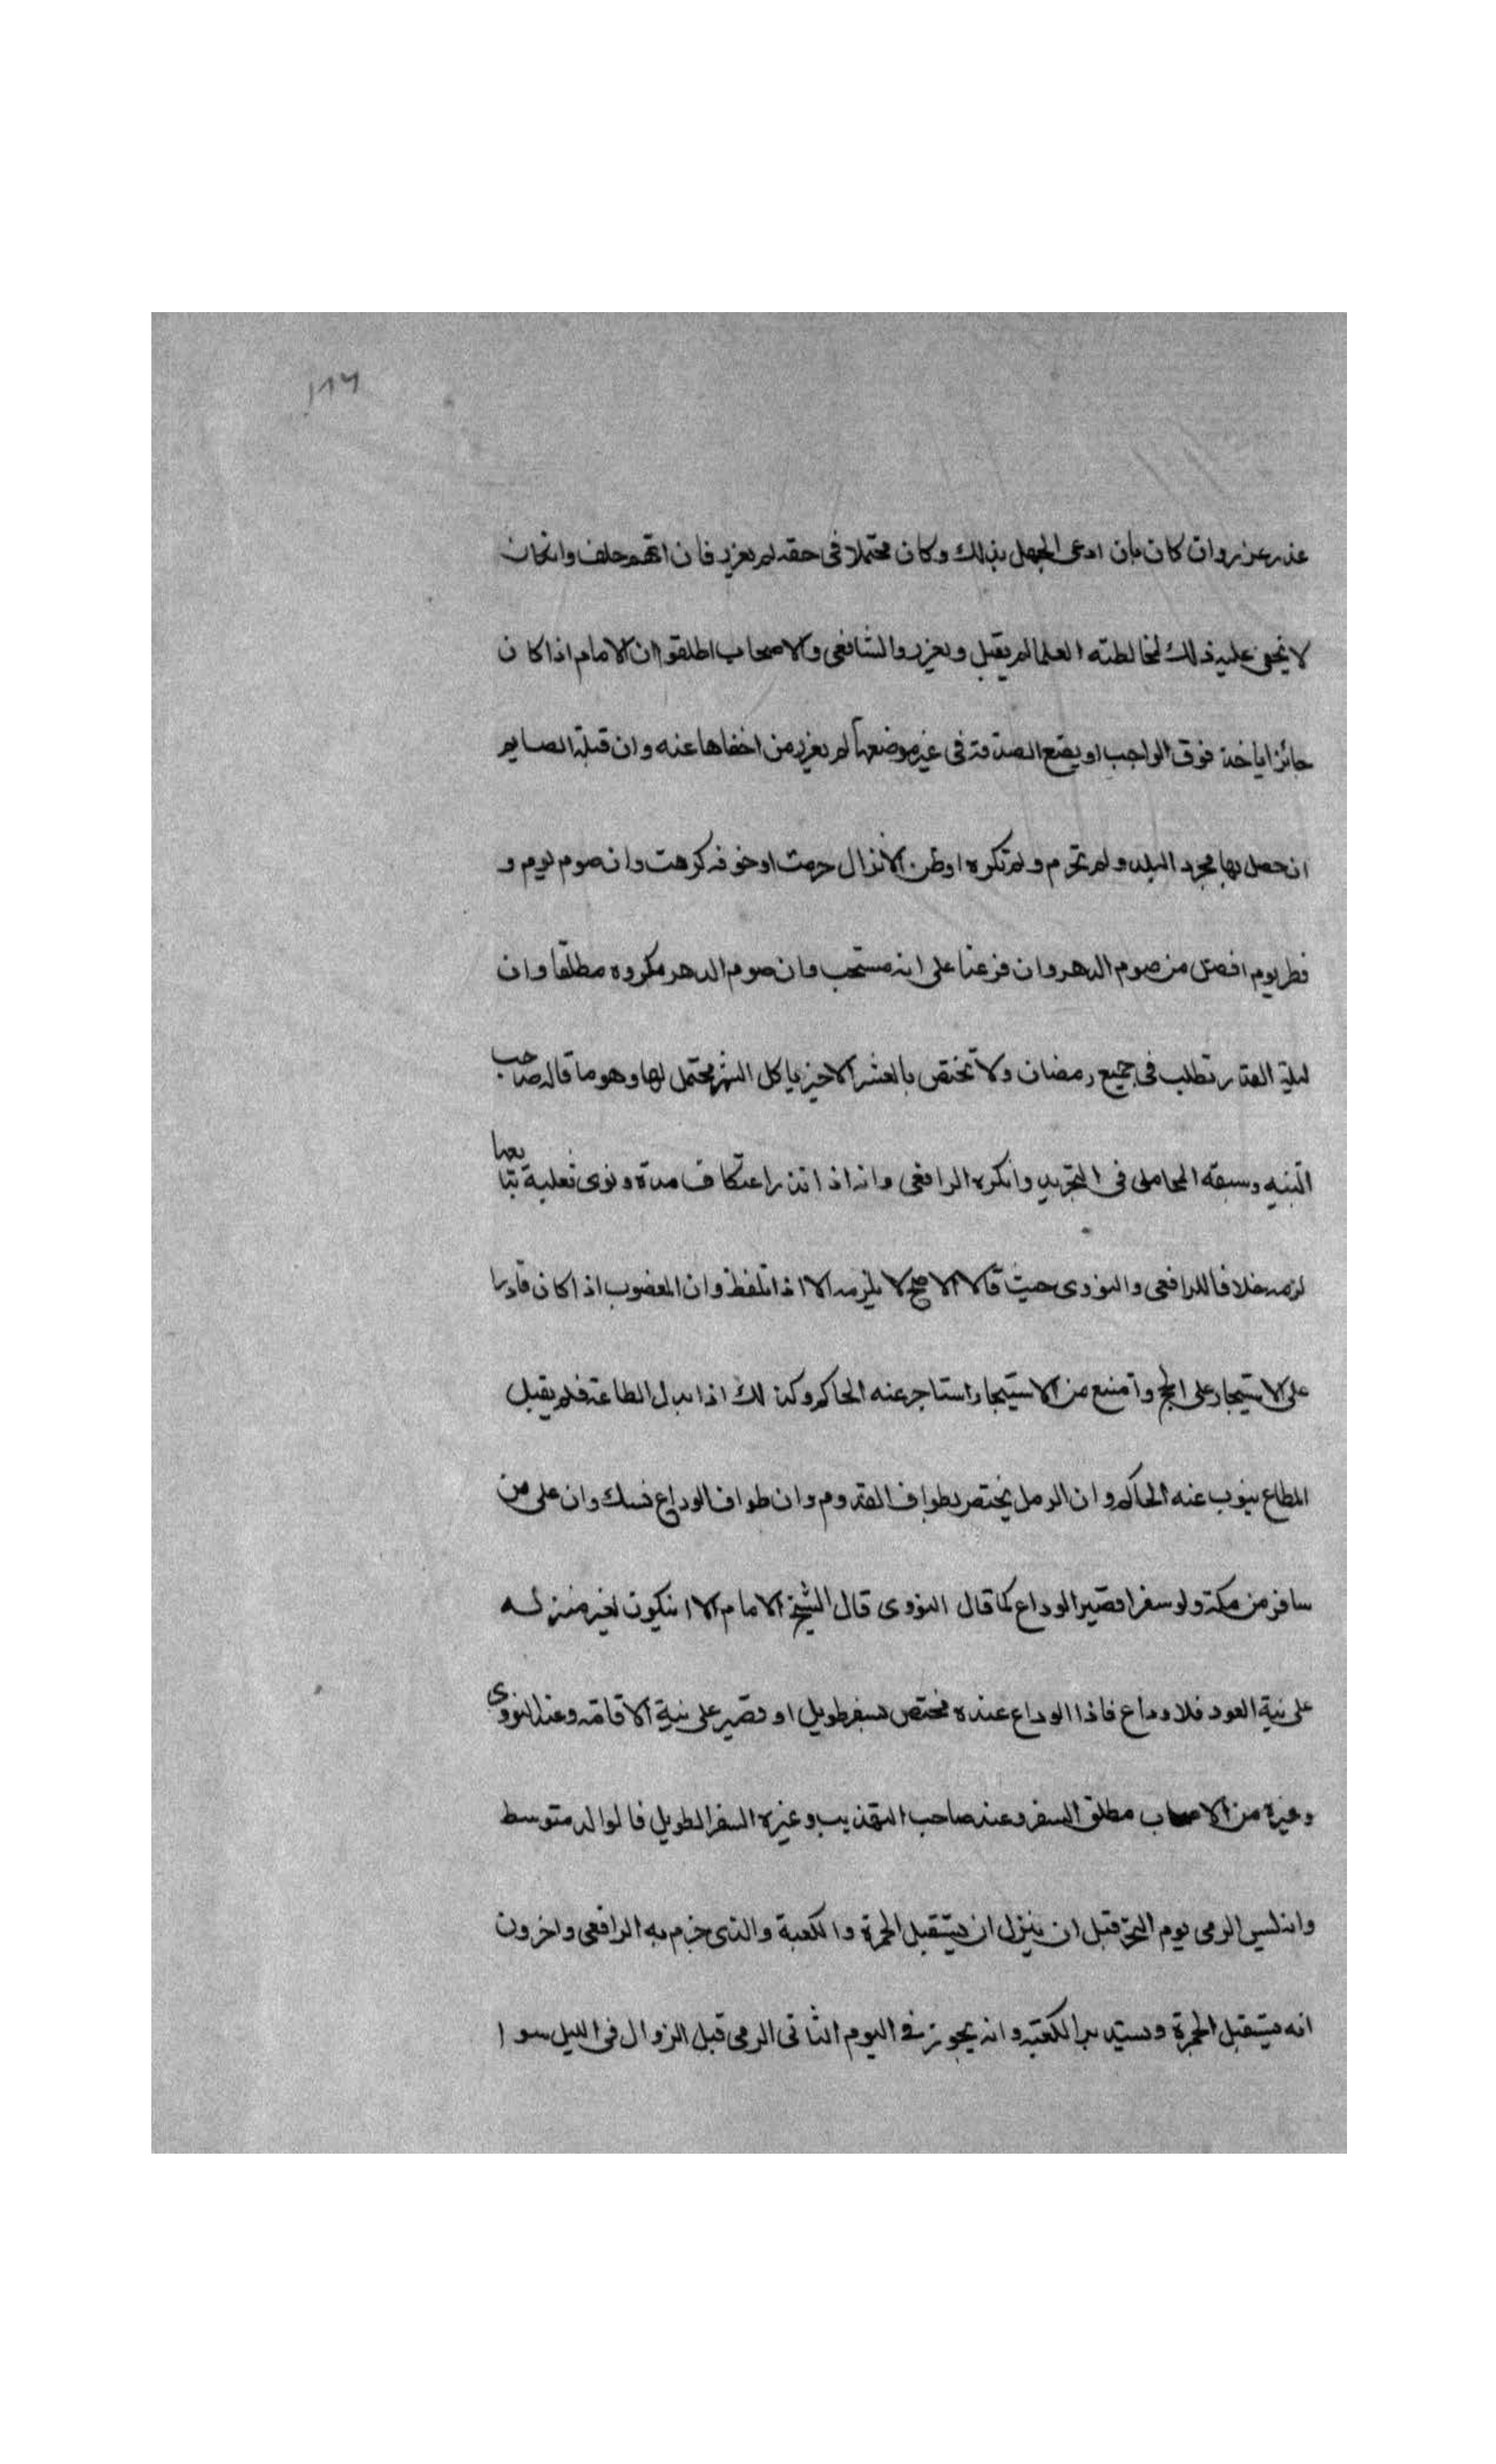 ١٨٦
عذر عزر وان كان بان ادعى الجهل بذلك وكان محتملا في حقه لم يعزر فان اتهم حلف وان كان
لا يخفى عليه ذلك لمخالطته العلما لم يقبل ويعزر والشافعي والاصحاب اطلقوا ان الامام اذا كان
جائزا ياخذ فوق الواجب او يضع الصدقة في غير موضعها لم يعزر من اخفاها عنه وان قبلة الصايم
ان حصل بها مجرد التلذذ ولم تحرم ولم تكره او ظن الانزال حرمت او خوفه كرهت وان صوم يوم و
فطر يوم افضل من صوم الدهر وان فرعنا على انه مستحب وان صوم الدهر مكروه مطلقا وان
ليلة القدر تطلب في جميع رمضان ولا تختص بالعشر الاخير بل كل الشهر محتمل لها وهو ما قاله صاحب
التنبيه وسبقه المحاملي في التجريد وانكره الرافعي وانه اذا نذر اعتكاف مدة ونوى تتابعها
لزمه خلافا للرافعي والنووي حيث قالا الاصح لا يلزمه الا اذا تلفظ وان المعضوب اذا كان قادرا
على الاستيجار على الحج وامتنع من الاستيجار استاجر عنه الحاكم وكذلك اذا بذل الطاعة فلم يقبل
المطاع ينوب عنه الحاكم وان الرمل يختص بطواف القدوم وان طواف الوداع نسك وان على من
سافر من مكة ولو سفرا قصيرا الوداع كما قال النووي قال الشيخ الامام الا ان يكون لغير منزله
على نية العود فلا وداع فاذا الوداع عنده مختص بسفر طويل او قصير على نية الاقامة وعند النووي
وغيره من الاصحاب مطلق السفر وعند صاحب التهذيب وغيره السفر الطويل فالوالد متوسط
وانه ليس الرمي يوم النحر قبل ان ينزل ان يستقبل الجمرة والكعبة والذي جزم به الرافعي واخرون
انه يستقبل الجمرة ويستدبر الكعبة وانه يجوز في اليوم الثاني الرمي قبل الزوال في الليل سوا